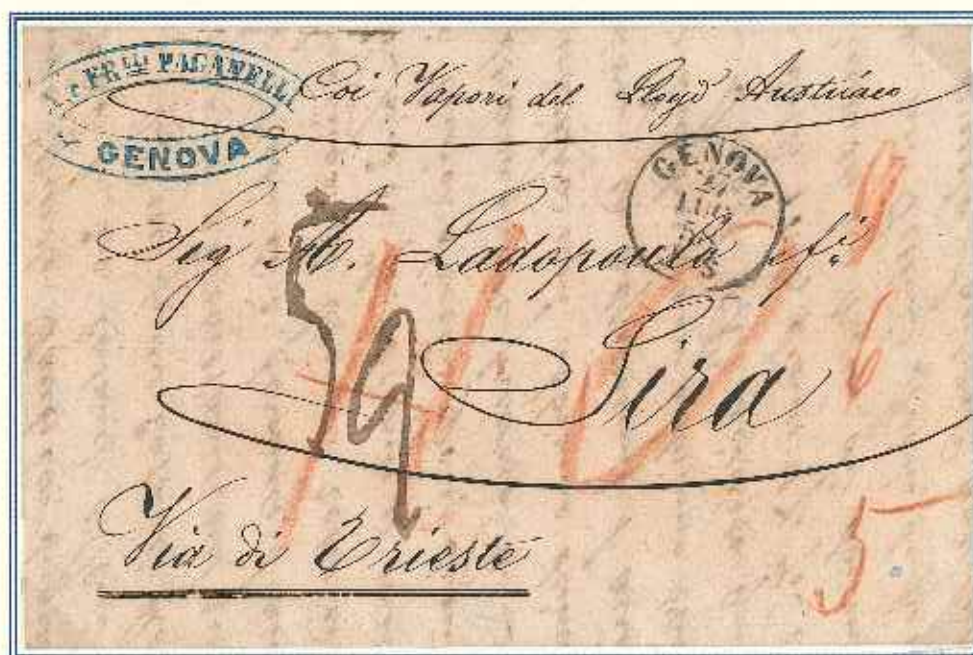 FR.LLI PAGANELLI
GENOVA
Coi Vapori del Lloyd Austriaco
GENOVA
LUG
Sig A. Ladopoulo fi
Sira
59
6
5
Via di Trieste